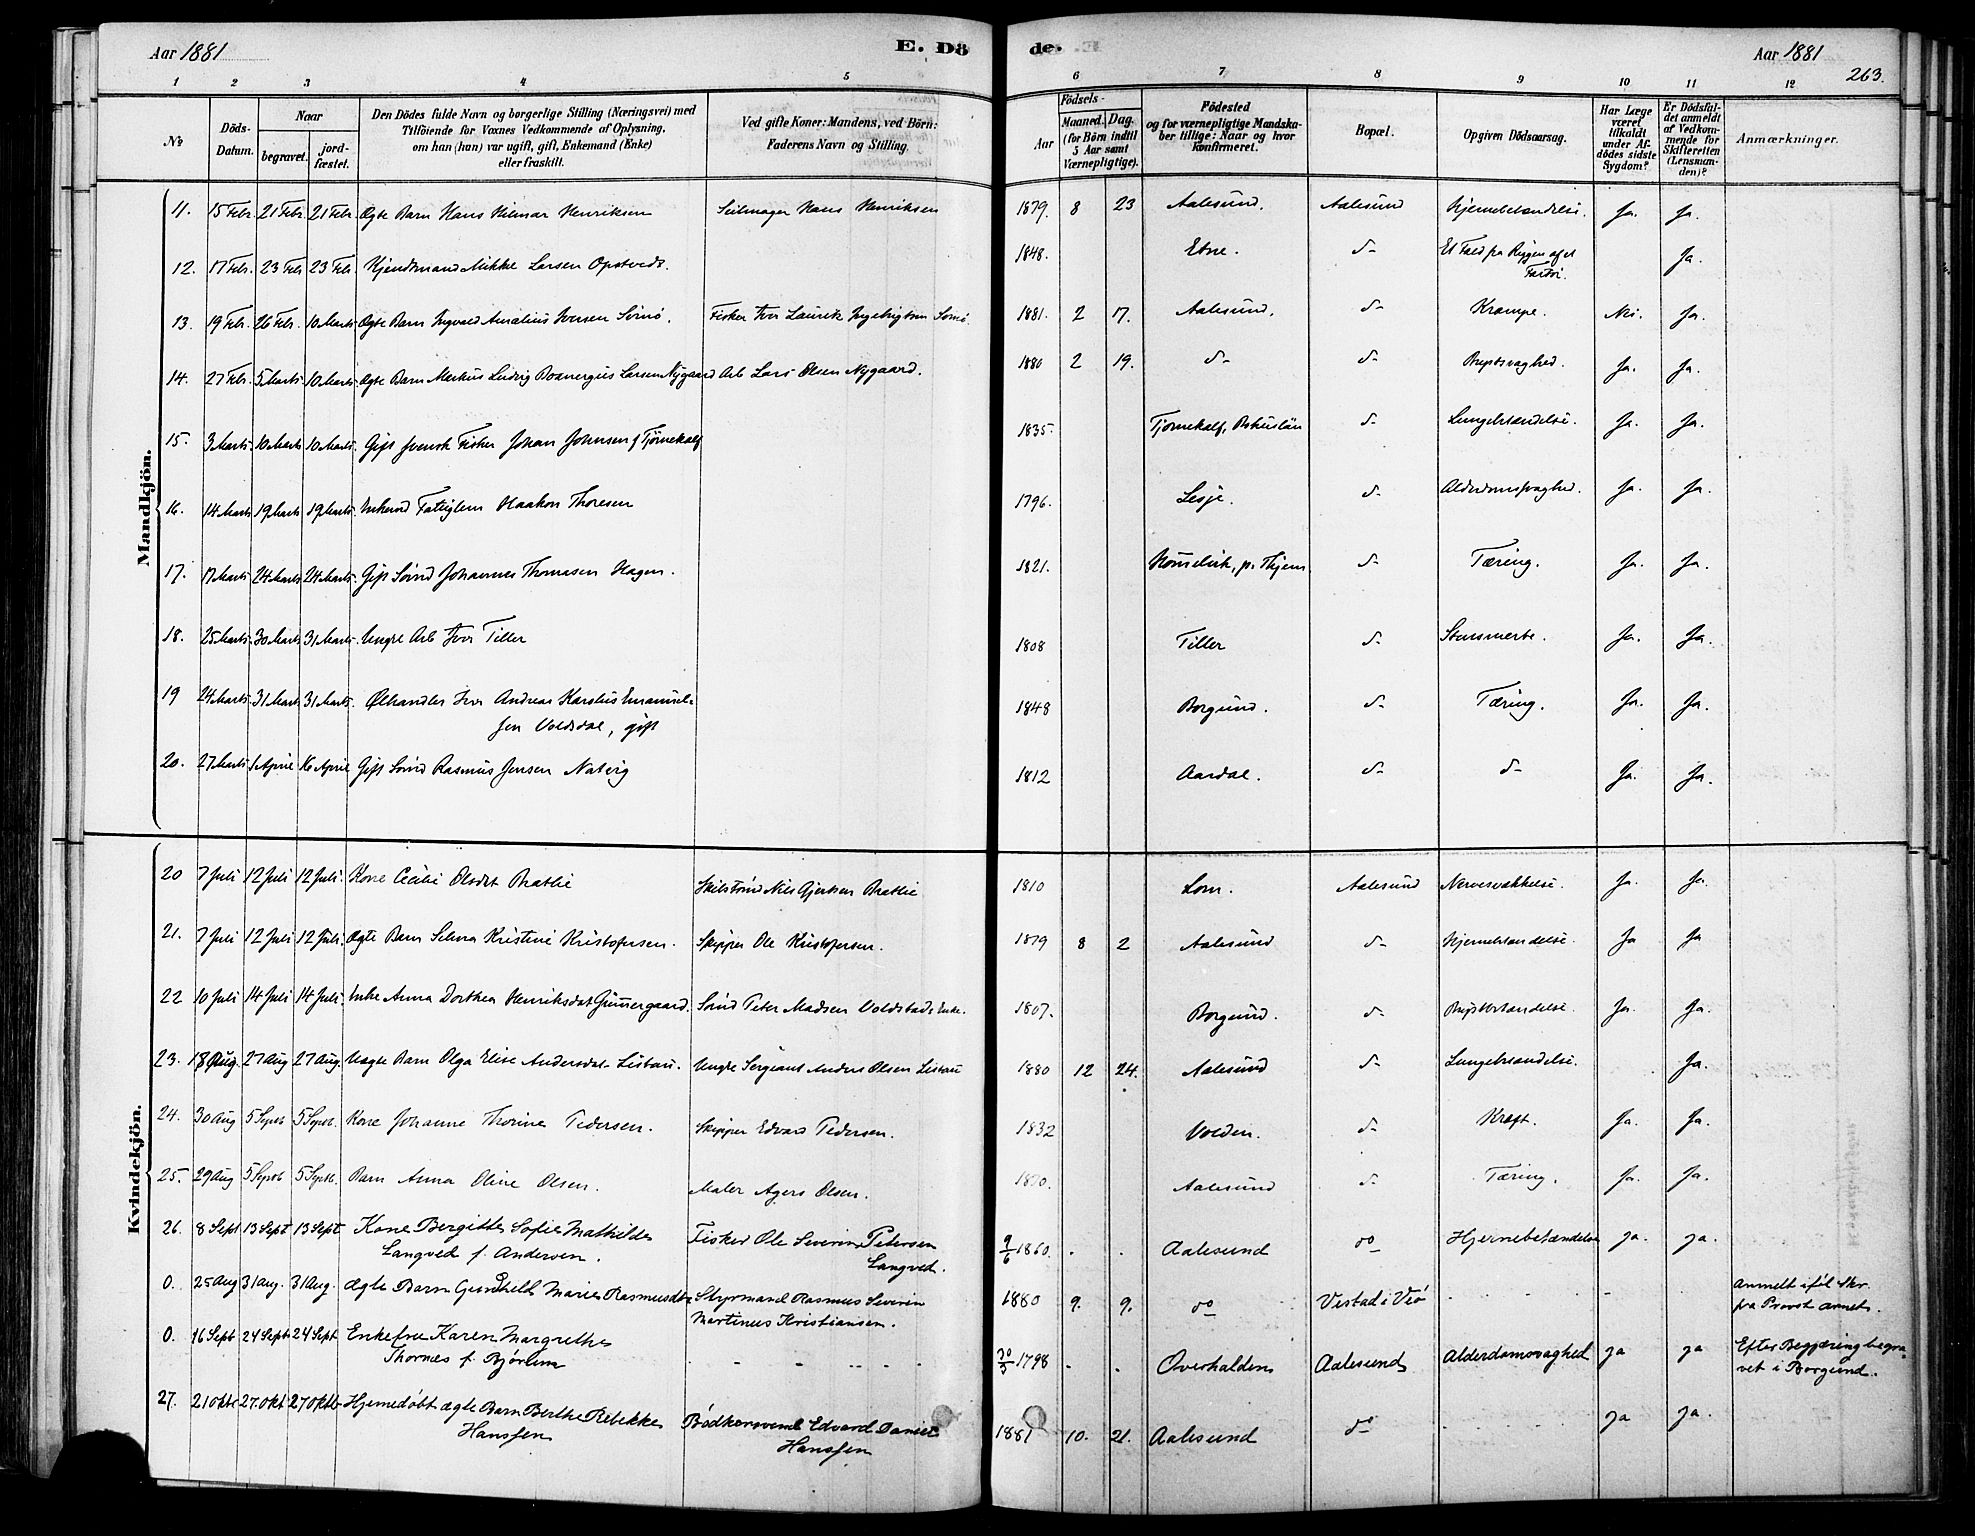 Aar 1881
E. Dö
de.
Aar 1881
263.
1 2 3 4 5 6 7 8 9 10 11 12
No
Döds-Datum.
Naar
begravet.
jord-fæstet.
Den Dödes fulde Navn og borgerlige Stilling (Næringsvei) med
Tilföiende for Voxnes Vedkommende af Oplysning,
om han (hun) var ugift, gift, Enkemand (Enke)
eller fraskilt.
Ved gifte Koner: Mandens, ved Börn:
Faderens Navn og Stilling.
Födsels-
Aar
Maaned. Dag.
(for Börn indtil
5 Aar samt
Værnepligtige).
Födested
og for værnepligtige Mandska-
ber tillige: Naar og hvor
konfirmeret.
Bopæl.
Opgiven Dödsaarsag.
Har Læge
været
tilkaldt
under Af-
dödes sidste
Sygdom?
Er Dödsfal-
det anmeldt
af Vedkom-
mende for
Skifteretten
(Lensman-
den)?
Anmærkninger.
Mandkjön.
11. 15 Febr. 21 Febr. 21 Febr. Ægte Barn Hans Hilmar Henriksen Seilmager Hans Henriksen 1879. 8 23 Aalesund. Aalesund Hjernebetændelse. Ja. Ja.
12. 17 Febr. 23 Febr. 23 Febr. Mikkel Larsen Opstvedt. 1848. Etne. do Et Fald fra Riggen af et Ja.
Fartøi.
13. 19 Febr. 26 Febr. 10 Marts Ægte Barn Ingvald Aurelius Iversen Sørnø. Fisker Iver Laurik Ingebrigtsen Sørnø. 1881. 2 17. Aalesund. do Krampe. Nei. Ja.
14. 27 Febr. 5 Marts 10 Marts Ægte Barn Markus Ludvig Boanergius Larsen Nygaard Arb Lars Olsen Nygaard. 1880 2 19. do do Brystsvaghed. Ja. Ja.
15. 3 Marts 10 Marts 10 Marts. Gift svensk Fisker Johan Johnsen f Tjörnekalf 1835. Tjörnekalf, Bohuslän do Lungebetændelse. Ja. Ja.
16. 14 Marts 19 Marts 19 Marts. Fattiglem Haakon Thoresen 1796. Lesje. do Alderdomssvaghed. Ja. Ja.
17. 17 Marts 24 Marts 24 Marts. Gift Johannes Thomasen Hagen. 1821. do Tæring. Ja. Ja.
18. 25 Marts. 30 Marts 31 Marts. Ungk. Arb Iver Tiller 1808 Tiller do Ja. Ja.
19 24 Marts 31 Marts 31 Marts. Ølhandler Iver Andreas Karolius Emanuel- 1848 Borgund. do Tæring. Ja. Ja.
sen Voldsdal, gift
20. 27 Marts 1 April 16 April Gift Rasmus Jensen Natvig 1812 Aardal. do do Ja. Ja.
Kvindekjön.
20 7 Juli 12 Juli 12 Juli. Kone Cecilie Olsdat Bratlie Nils Gjertsen Bratlie 1810 Lom. Aalesund Nervesvækkelse. Ja. Ja.
21. 7 Juli 12 Juli 12 Juli. Ægte Barn Selma Kristine Kristofersen. Skipper Ole Kristofersen. 1879 8 2 Aalesund do Hjernebetændelse. Ja Ja
22 10 Juli 14 Juli 14 Juli. Enke Anna Dorthea Henriksdat Gunnergaard. Peter Madsen Voldstads Enke. 1807. Borgund. do Brystbetændelse. Ja. Ja.
23. 18 Aug. 27 Aug 27 Aug. Uægte Barn Olga Elise Andersdat. Listau. Sergiant Anders Olsen Listau 1880 12 24. Aalesund do Lungebetændelse. Ja.
24. 30 Aug 5 Septb 5 Septb. Kone Johanne Thorine Pedersen. Skipper Edvard Pedersen. 1832 Volden. do Kræft. Ja. Ja.
25. 29 Aug 5 Septb 5 Septb. Barn Anna Oline Olsen. Maler Olsen. 1870. Aalesund do Tæring. Ja. Ja.
26. 8 Sept 13 Sept 13 Sept. Kone Bergitte Sofie Mathilde Fisker Ole Severin Petersen 9/6 1860. . . Aalesund do Hjernebetændelse ja. ja.
Langved f. Andersen. Langved.
0. 25 Aug 31 Aug. 31 Aug. Ægte Barn Gunhild Marie Rasmusdtr Styrmand Rasmus Severin 1880 9. 9. do Vestad i Veø - - Anmeldt iføl Skr.
Martinus Kristiansen. fra Provst
0. 16 Sept 24 Sept 24 Sept Enkefru Karen Margrethe - - - 30/5 1798 - . Overhalden Aalesund Alderdomsvaghed ja ja Efter Begjæring begra-
Thornæs f. Bjørum vet i Borgund.
27. 21 Oktb 27. Okt 27 Oktb Hjemmedøbt ægte Barn Berthe Rebekke Bødkersvend Edvard Daniel 1881 10. 21. Aalesund do - - ja ja.
Hanssen Hanssen